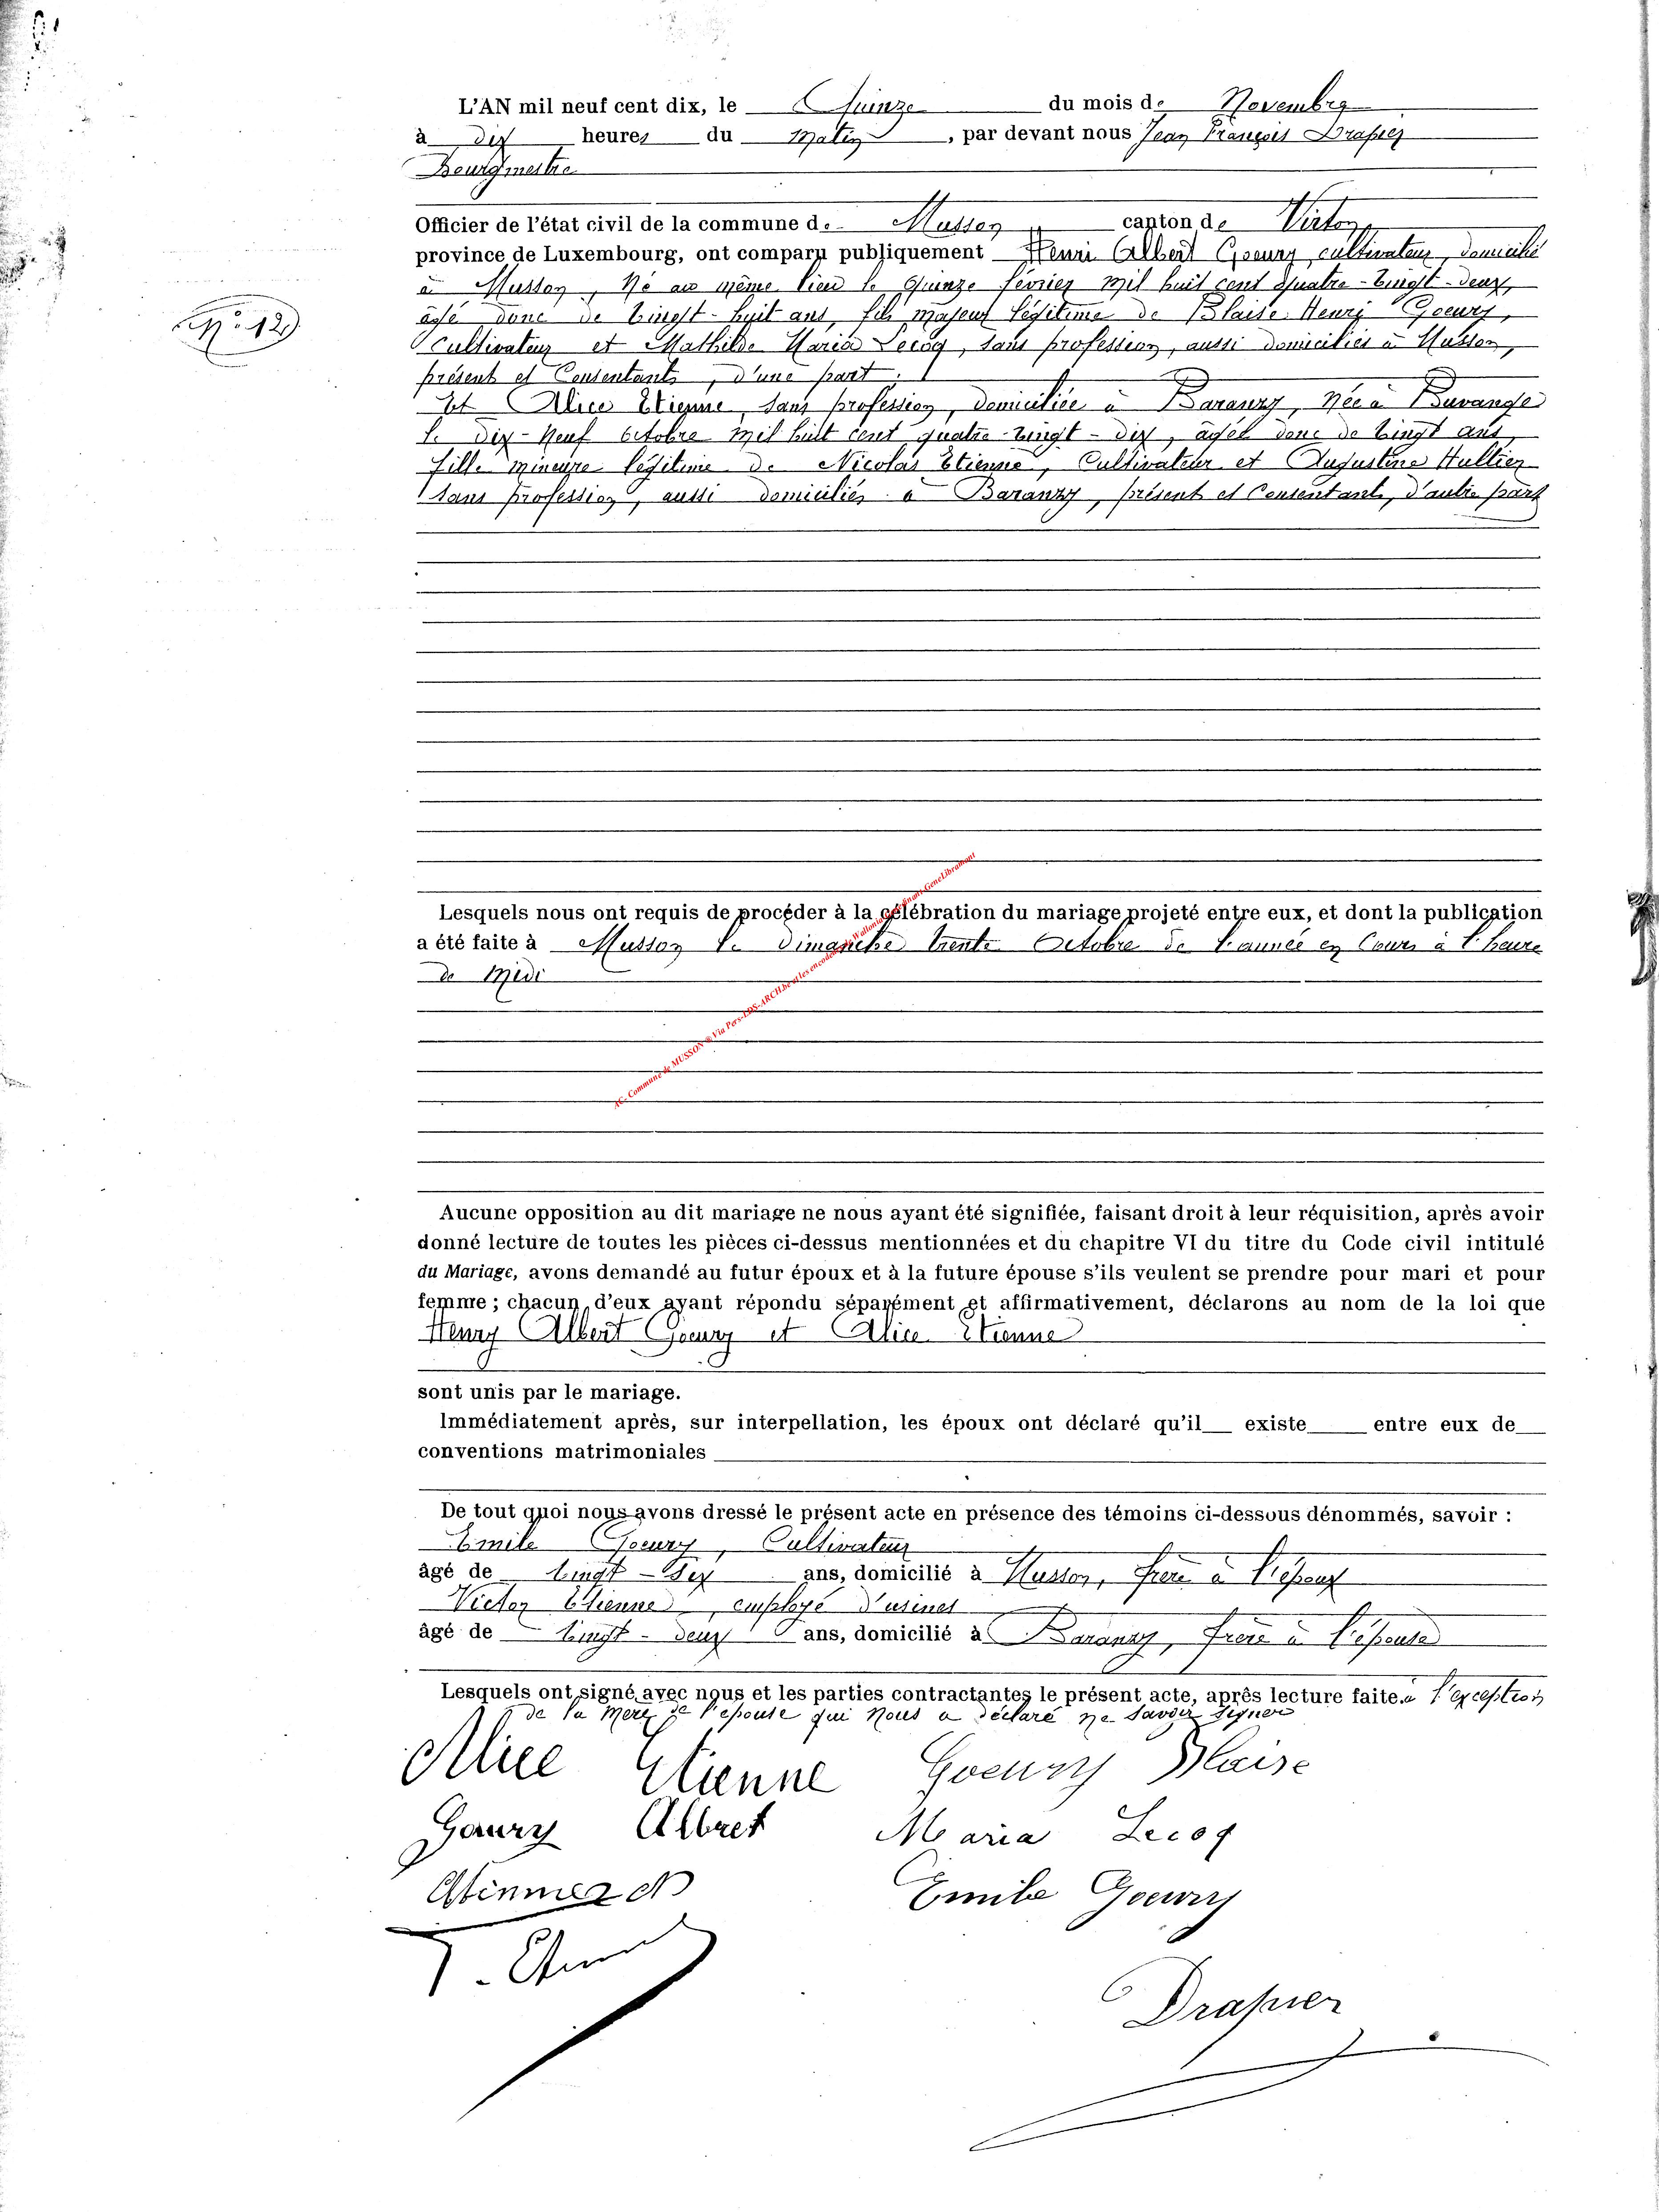 L'AN mil neuf cent dix, le Quinze du mois de Novembre
à dix heures du Matin, par devant nous Jean François Drapier
Bourgmestre
Officier de l'état civil de la commune de Musson canton de Virton,
province de Luxembourg, ont comparu publiquement Henri Albert Goeury cultivateur, domicilié
à Musson, Né au même lieu le Quinze février mil huit cent Quatre-Vingt-deux,
âgé donc de Vingt-huit ans, fils majeur légitime de Blaise Henry Goeury,
Cultivateur et Mathilde Maria Lecoq, sans profession, aussi domiciliés à Musson,
présents et Consentants, d'une part.
Et Alice Etienne, sans profession, domiciliée à Baranzy, Née à Buvange
le dix-Neuf Octobre mil huit cent quatre-vingt-dix, âgée donc de Vingt ans,
fille mineure légitime de Nicolas Etienne, Cultivateur et Augustine Hullier
sans profession, aussi domiciliés à Baranzy, présent et Consentant, d'autre part
Nº 12
Lesquels nous ont requis de procéder à la célébration du mariage projeté entre eux, et dont la publication
a été faite à Musson le dimanche trente Octobre de l'année en Cours à l'heure
de Midi
AC- Commune de MUSSON ® Via Pers-LDS-ARCH.be et les encodeurs Wallonia GeneLibramont
Aucune opposition au dit mariage ne nous ayant été signifiée, faisant droit à leur réquisition, après avoir
donné lecture de toutes les pièces ci-dessus mentionnées et du chapitre VI du titre du Code civil intitulé
du Mariage, avons demandé au futur époux et à la future épouse s'ils veulent se prendre pour mari et pour
femme ; chacun d'eux ayant répondu séparément et affirmativement, déclarons au nom de la loi que
Henry Albert Goeury et Alice Etienne
sont unis par le mariage.
Immédiatement après, sur interpellation, les époux ont déclaré qu'il existe entre eux de
conventions matrimoniales
De tout quoi nous avons dressé le présent acte en présence des témoins ci-dessous dénommés, savoir :
Emile Goeury, Cultivateur
âgé de Vingt-Six ans, domicilié à Musson, frère à l'époux
Victor Etienne, employé d'usines
âgé de Vingt-deux ans, domicilié à Baranzy, frère à l'épouse
Lesquels ont signé avec nous et les parties contractantes le présent acte, après lecture faite à l'exception
de la Mère de l'épouse qui Nous a déclaré ne savoir signer
Alice Etienne Goeury Blaise
Goeury Albert Maria Lecoq
Etienne N Emile Goeury
Drapier